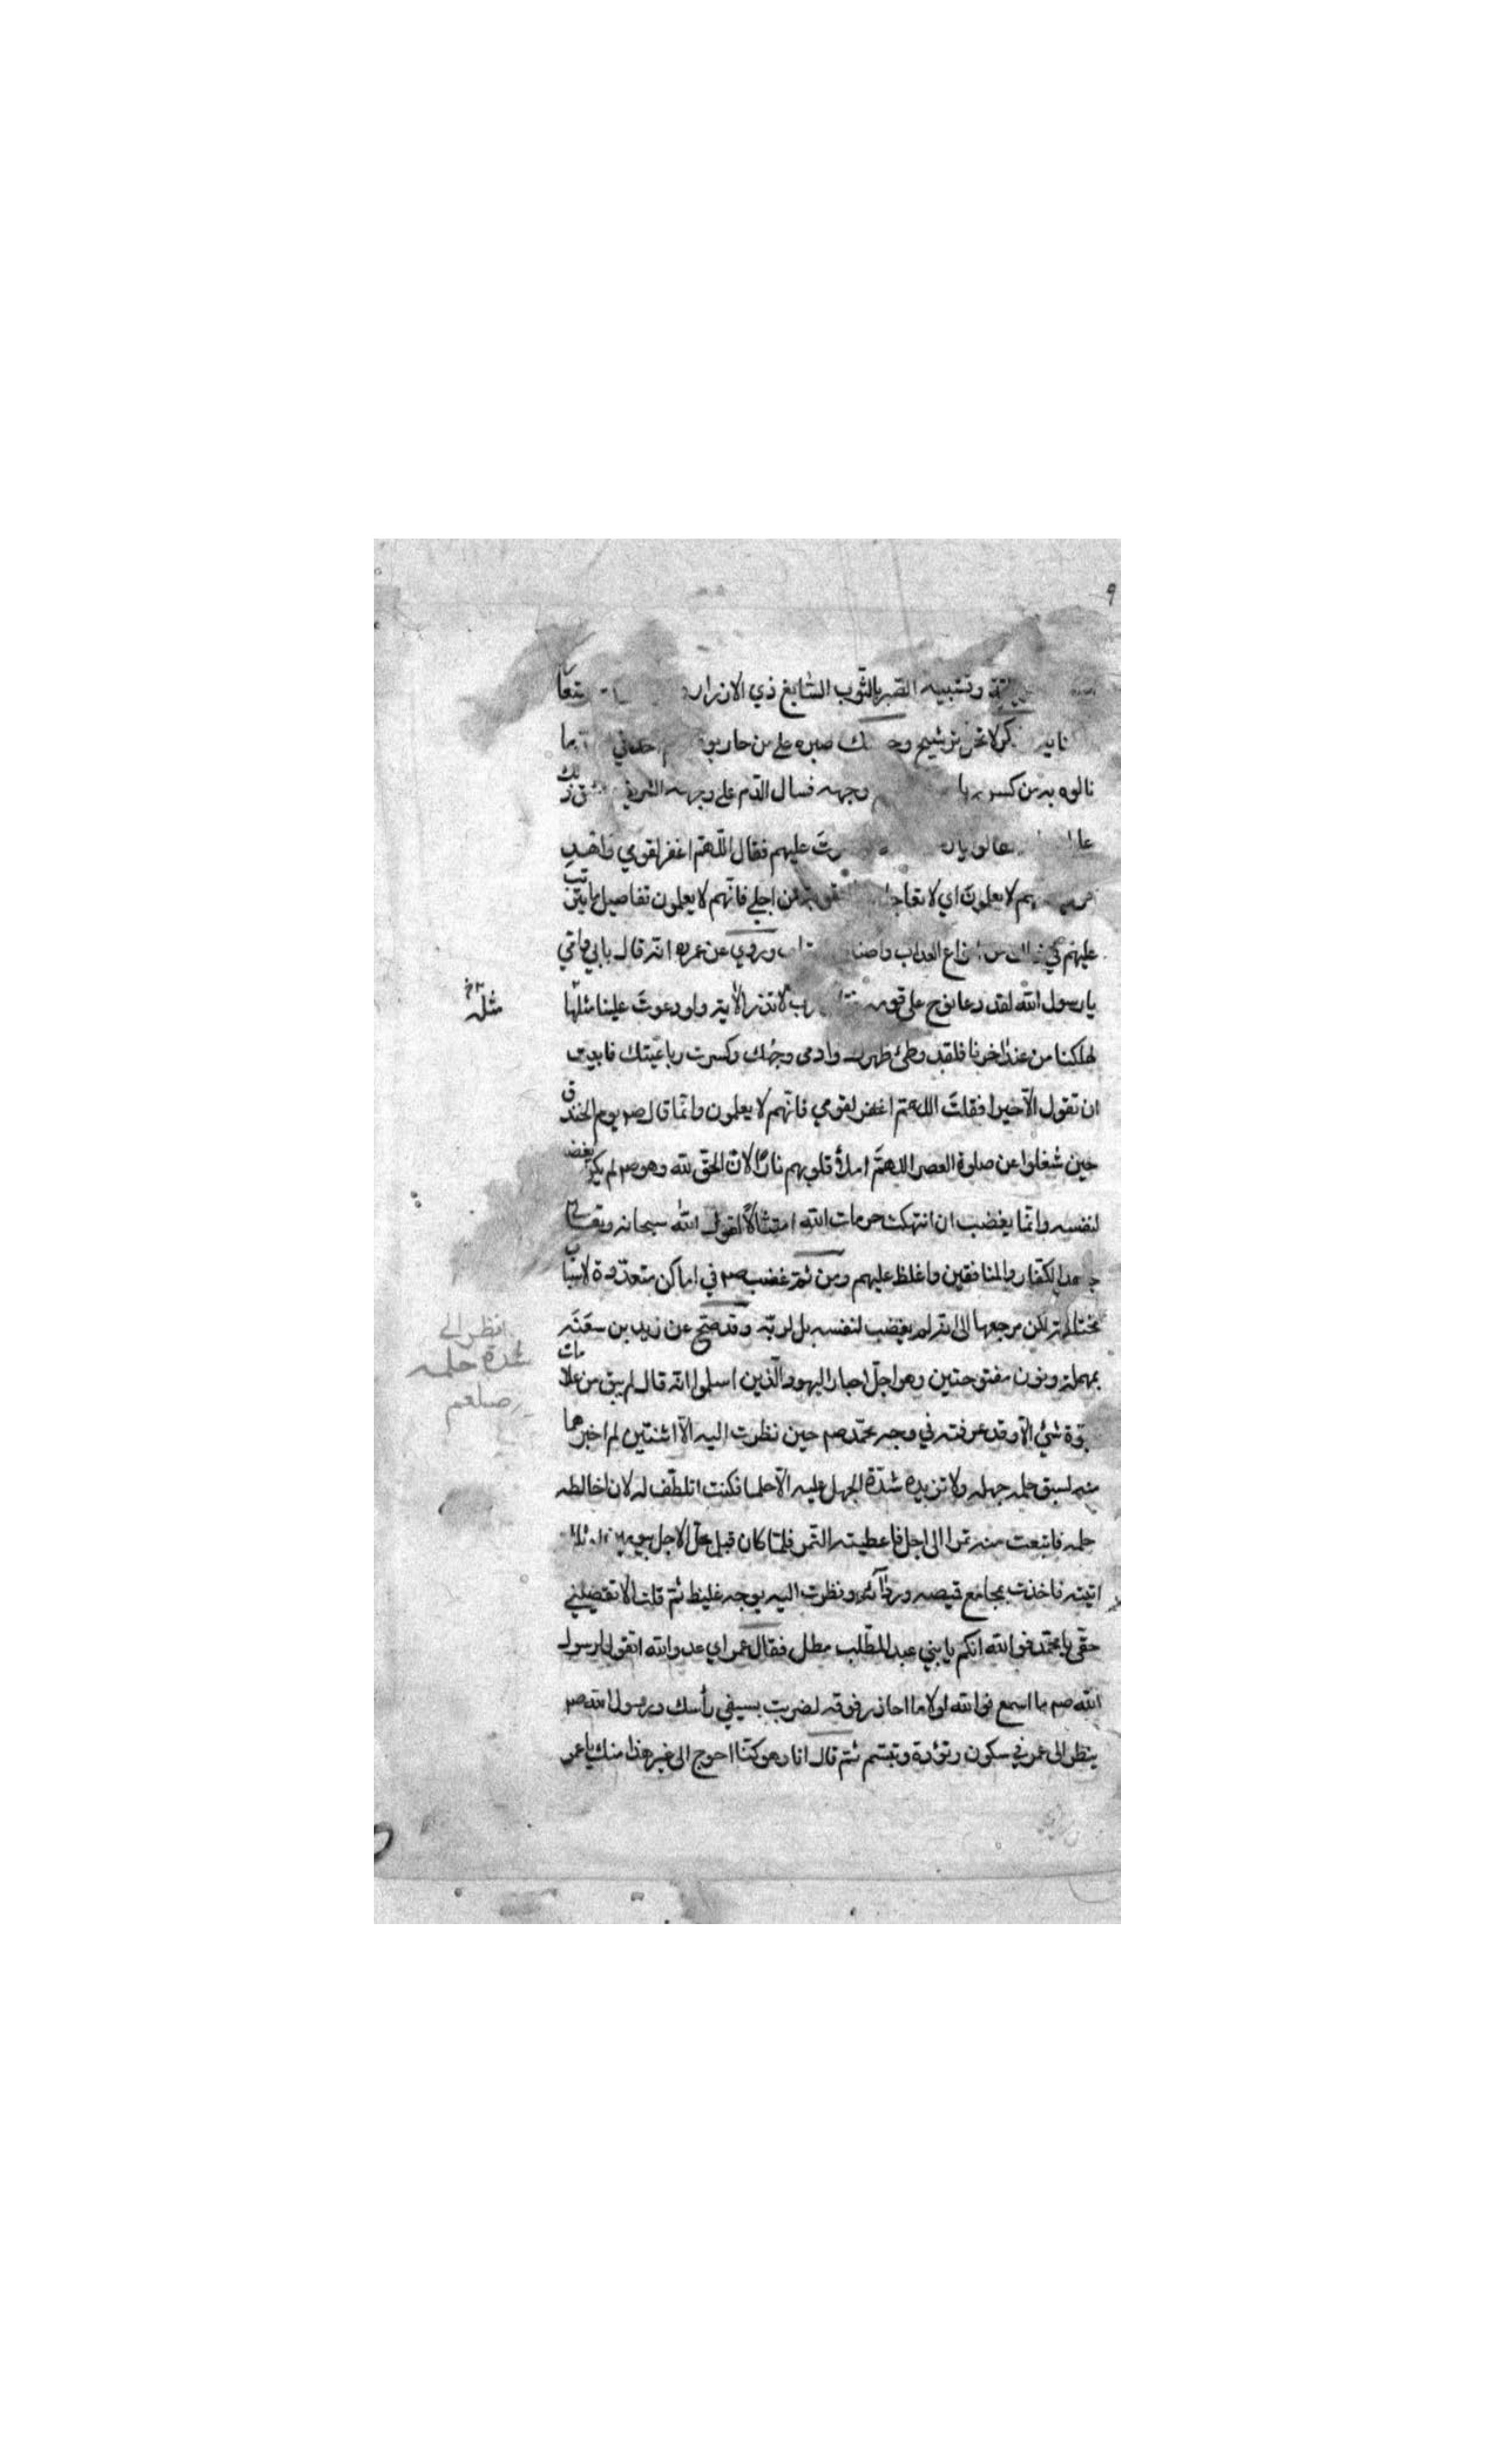 ٩
وتشبيه الصبر بالثوب السابغ ذي الازرار
ترشيح صبره على من حاربوه
نالوه به من كسر وجهه فسال الدم على وجهه الشريف
عليهم فقال اللهم اغفر لقومي واهد
لا يعلمون اي لا من اجلي فانهم لا يعلمون تفاصيل ما يترتب
عليهم في العذاب واصناف وروي عن عمر رضه انه قال بابي وامي
يا رسول الله لقد دعا نوح على قومه رب لا تذر الآية ولو دعوت علينا مثلها
مثله
لهلكنا من عند اخرنا فلقد وطئ ظهرك وادمى وجهك وكسرت رباعيتك فابيت
ان تقول الا خيرا فقلت اللهم اغفر لقومي فانهم لا يعلمون وانما قال صم يوم الخندق
حين شغلوا عن صلوة العصر اللهم املأ قلوبهم نارًا لان الحق لله وهو صم لم يكن يغضب
لنفسه وانما يغضب ان انتهكت حرمات الله امتثالًا لقول الله سبحانه وتعالى
جاهد الكفار والمنافقين واغلظ عليهم ومن ثم غضب صم في اماكن متعددة لاسباب
مختلفة لكن مرجعها الى انه لم يغضب لنفسه بل لربه وقد صح عن زيد بن سعنه
انظر الى
شدة حلمه
صلعم
بمهملة ونون مفتوحتين وهو اجل احبار اليهود الذين اسلموا انه قال لم يبق من علامات
نبوة شئ الا وقد عرفته في وجه محمد صم حين نظرت اليه الا اثنتين لم اخبرهما
منه لسبق حلمه جهله ولا تزيده شدة الجهل عليه الا حلما فكنت اتلطف له لان اخالطه
حلمه فابتعت منه تمرا الى اجل فاعطيته الثمن فلما كان قبل محل الاجل بيومين او ثلاث
اتيته فاخذت بمجامع قميصه وردآئه ونظرت اليه بوجه غليظ ثم قلت الا تقضيني
حقي يا محمد فوالله انكم يا بني عبد المطلب مطل فقال عمر اي عدو الله اتقول لرسول
الله صم ما اسمع فوالله لولا ما احاذر فوقه لضربت بسيفي رأسك ورسول الله صم
ينظر الى عمر في سكون وتؤدة وتبسم ثم قال انا وهو كنا احوج الى غير هذا منك يا عمر